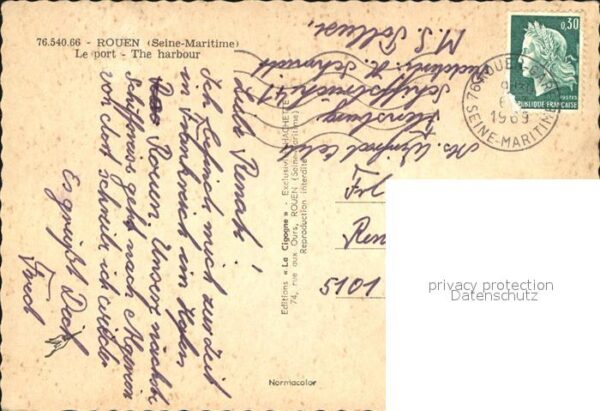 76.540.66 - ROUEN (Seine-Maritime)
Le port - The harbour
M. S.
Schiffbrück 41
Flensburg
0,30
POSTES
REPUBLIQUE FRANÇAISE
ROUEN GARE
1969
SEINE-MARITIME
Liebe Renate!
Ich befinde mich zur Zeit
in Frankreich im Hafen
Rouen. Unsere nächste
Schiffsreise geht nach Algerien
von dort schreibe ich wieder
Es grüßt Dich
Editions « La Cigogne » - Exclusivité HACHETTE
74, rue aux Ours, ROUEN (Seine-Maritime)
Reproduction interdite
Frl
Ren
5101
privacy protection
Datenschutz
Normacolor